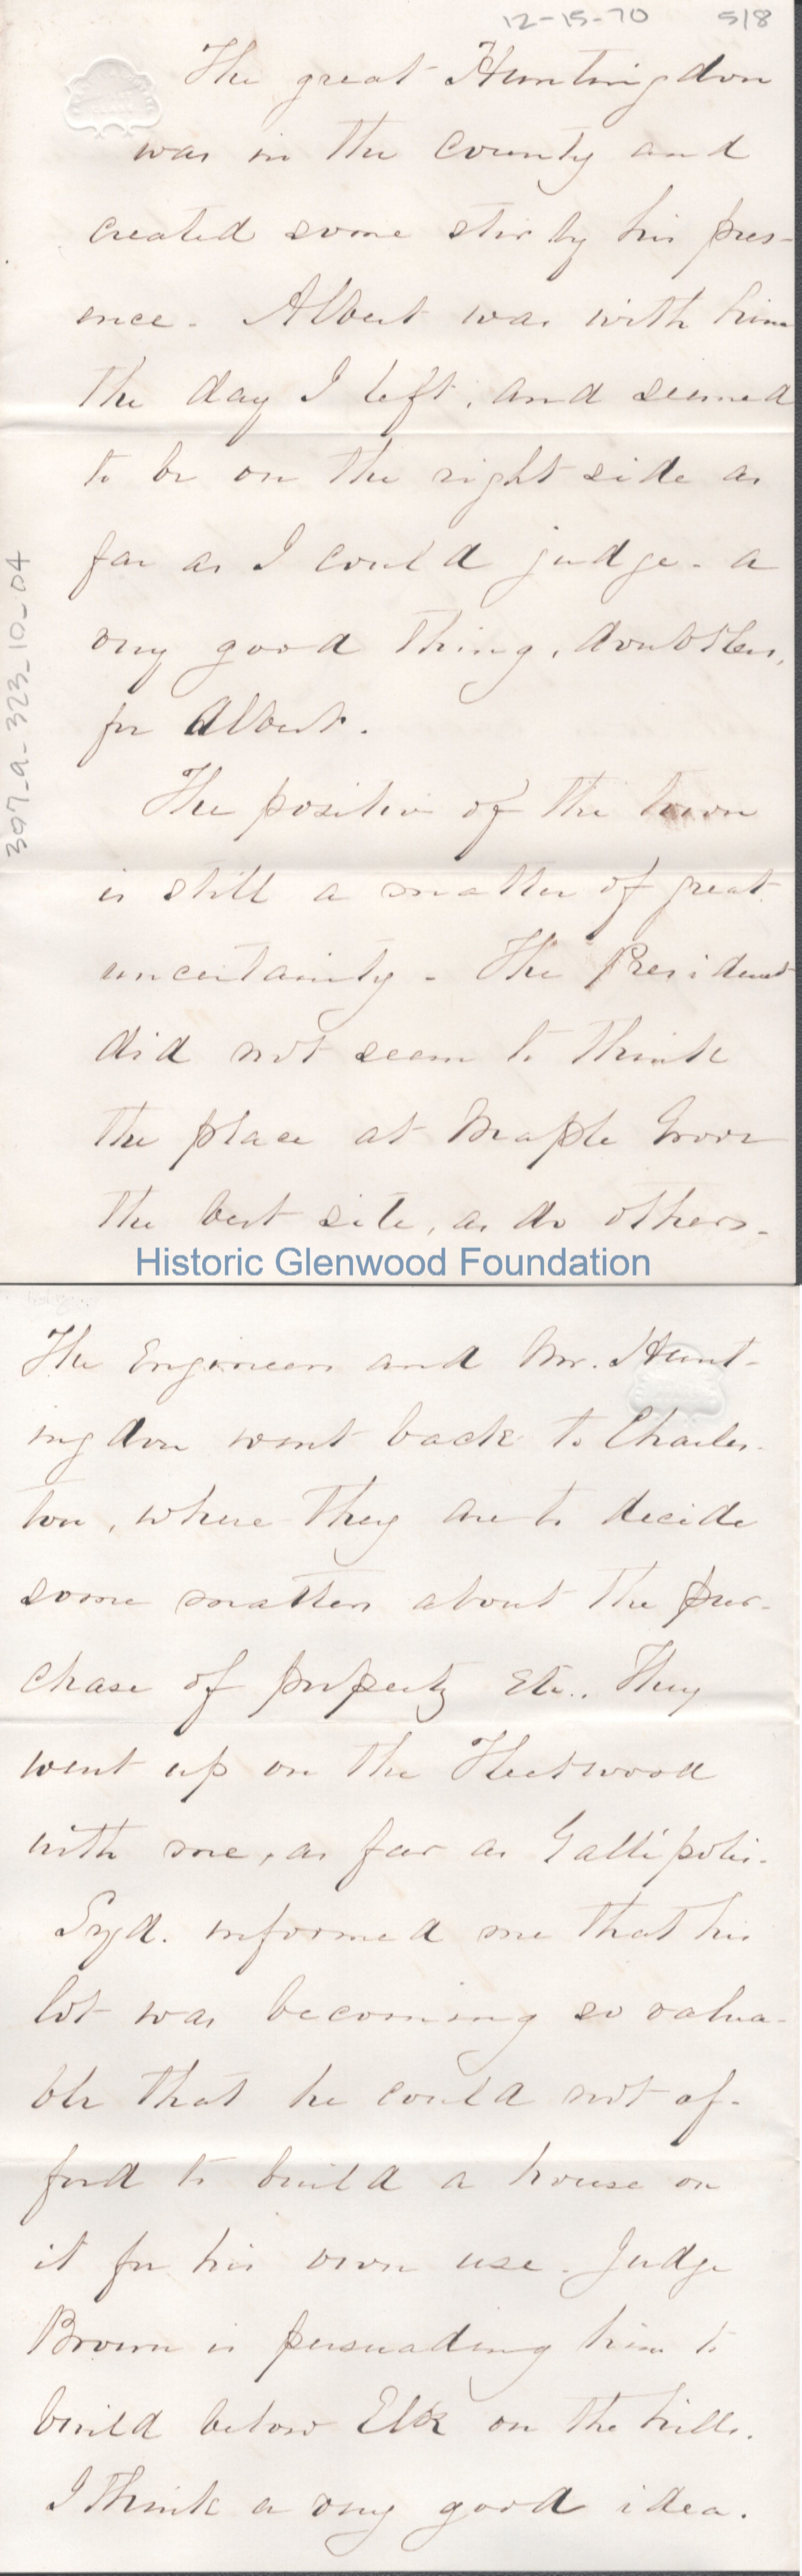 12-15-70 518
The great Huntingdon
was in the County and
created some stir by his pres-
ence. Albert was with him
the day I left, and seemed
to be on the right side as
far as I could judge - a
very good thing, doubtless,
for Albert.
The position of the town
is still a matter of great
uncertainty - The President
did not seem to think
the place at Maple Grove
the best site, as do others.
397_a_323_10_04
Historic Glenwood Foundation
The Engineers and Mr. Hunt-
ingdon went back to Charles-
ton, where they are to decide
some matters about the pur-
chase of property etc.. They
went up on the Fleetwood
with me, as far as Gallipolis.
Syd. informed me that his
lot was becoming so valua-
ble that he could not af-
ford to build a house on
it for his own use. Judge
Brown is persuading him to
build below Elk on the hills.
I think a very good idea.